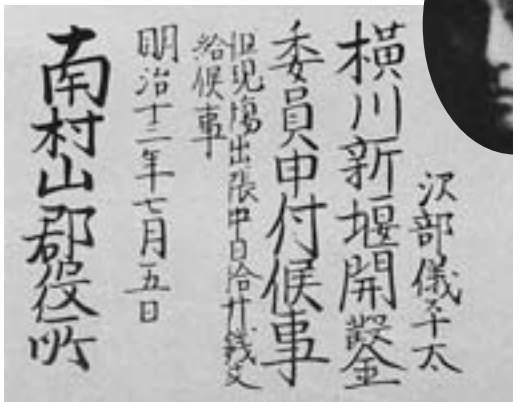 沢部儀平太
横川新堰開鑿
委員申付候事
但現場出張中日給廿銭支
給候事
明治十二年七月五日
南村山郡役所